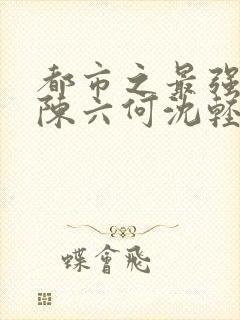 都市之最強
陳六何沈輕
蝶會飛